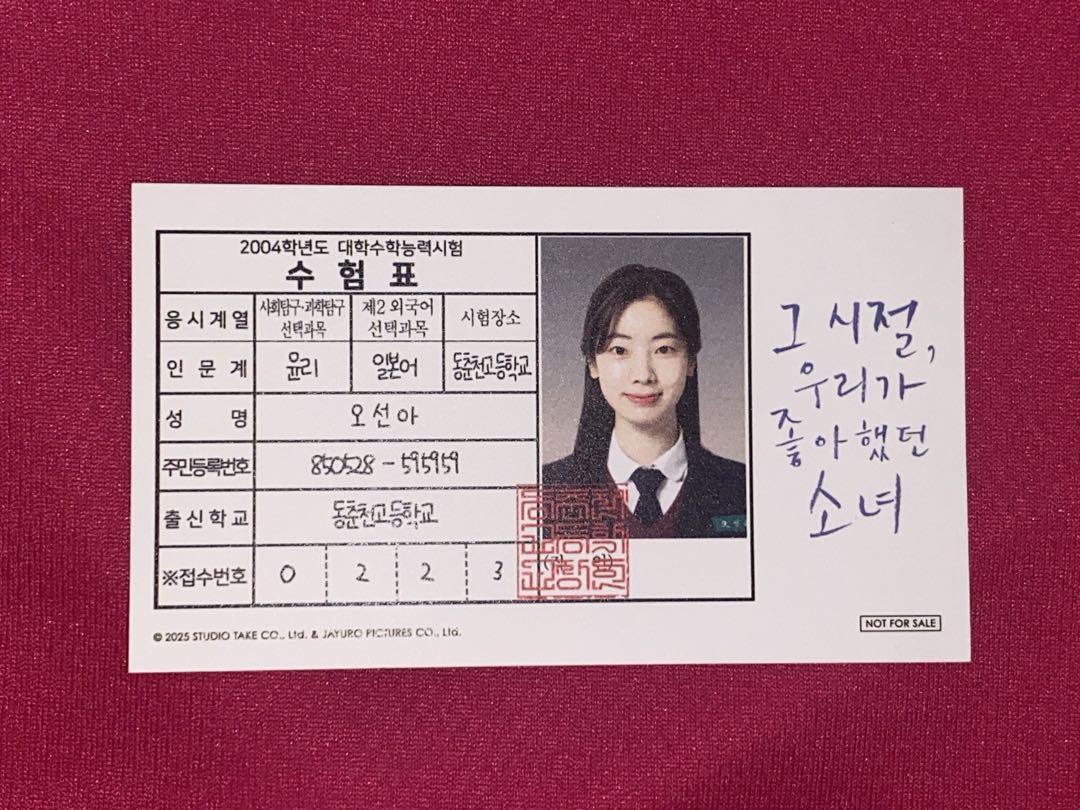 2004학년도 대학수학능력시험
수 험 표
응시계열 사회탐구·과학탐구 선택과목 제2외국어 선택과목 시험장소
인 문 계 윤리 일본어 동춘천고등학교
성 명 오선아
주민등록번호 850528-595959
출신학교 동춘천고등학교
※접수번호 0 2 2 3
그 시절,
우리가
좋아했던
소녀
© 2025 STUDIO TAKE CO., Ltd. & JAYURO PICTURES CO., Ltd.
NOT FOR SALE